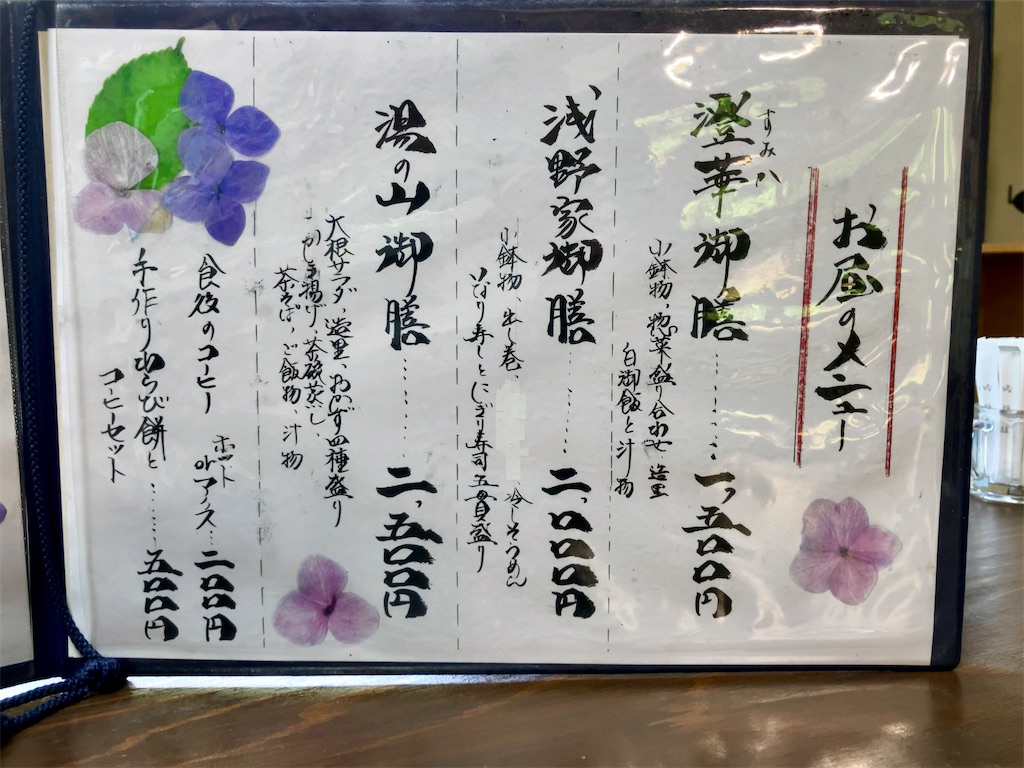 お昼のメニュー
すみか
澄華御膳……一、五〇〇円
小鉢物、惣菜盛り合わせ、造里
白御飯と汁物
浅野家御膳……二、〇〇〇円
小鉢物、出し巻、冷しそうめん
いなり寿しとにぎり寿司五貫盛り
湯の山御膳……二、五〇〇円
大根サラダ、造里、おかず四種盛り
かき揚げ、茶碗蒸し、
茶そば、ご飯物、汁物
食後のコーヒー ホット orアイス…二〇〇円
手作りわらび餅と……五〇〇円
コーヒーセット